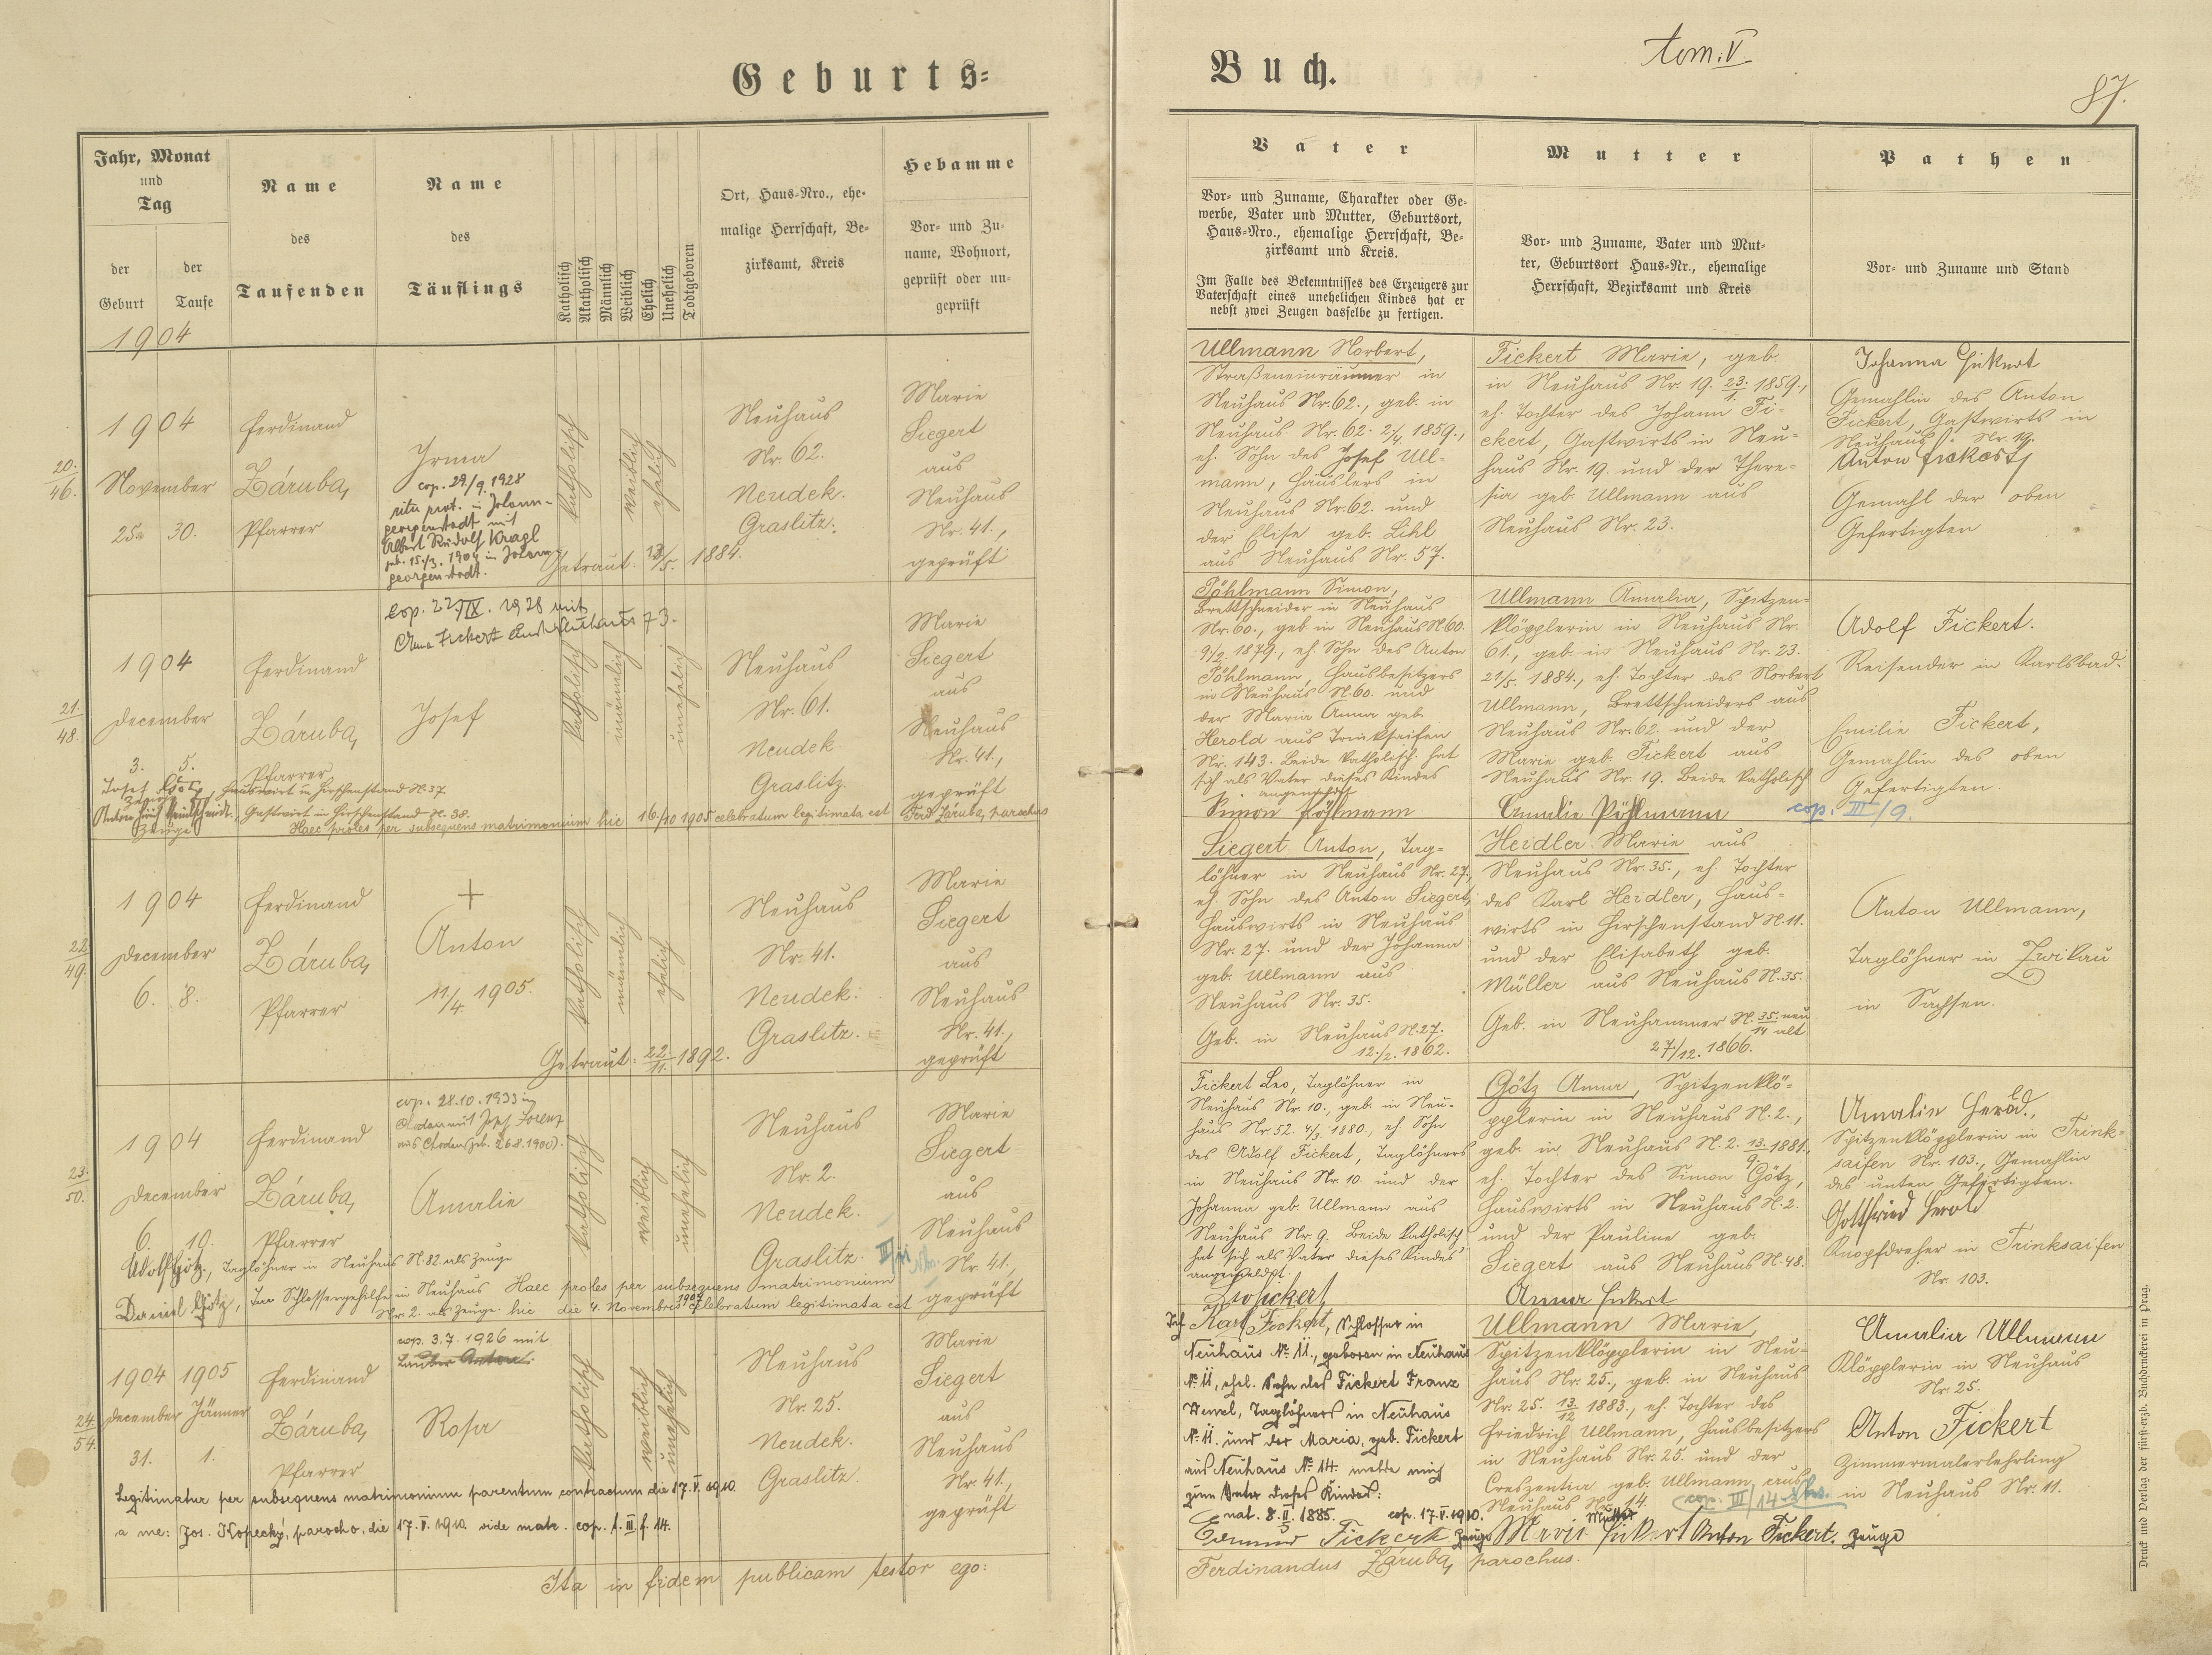 Geburts=
Buch.
tom: V.
87.
Jahr, Monat
und
Tag
der
Geburt
der
Taufe
Name
des
Taufenden
Name
des
Täuflings
Katholisch
Akatholisch
Männlich
Weiblich
Ehelich
Unehelich
Todtgeboren
Ort, Haus-Nro., ehe-
malige Herrschaft, Be-
zirksamt, Kreis
Hebamme
Vor- und Zu-
name, Wohnort,
geprüft oder un-
geprüft
Vater
Vor- und Zuname, Charakter oder Ge-
werbe, Vater und Mutter, Geburtsort,
Haus-Nro., ehemalige Herrschaft, Be-
zirksamt und Kreis.
Im Falle des Bekenntnisses des Erzeugers zur
Vaterschaft eines unehelichen Kindes hat er
nebst zwei Zeugen dasselbe zu fertigen.
Mutter
Vor- und Zuname, Vater und Mut-
ter, Geburtsort Haus-Nr., ehemalige
Herrschaft, Bezirksamt und Kreis
Pathen
Vor- und Zuname und Stand
1904
20.
46.
1904
November
25. 30.
Ferdinand
Záruba,
Pfarrer
Irma
cop. 29./9. 1928
ritu prot. in Johann-
georgenstadt mit
Albert Rudolf Kragl
geb. 15./3. 1904 in Johann
georgenstadt.
katholisch
weiblich
ehelich
Getraut: 13/5. 1884.
Neuhaus
Nr. 62.
Neudek.
Graslitz.
Marie
Siegert
aus
Neuhaus
Nr. 41.,
geprüft
Ullmann Norbert,
Straßeneinräumer in
Neuhaus Nr. 62., geb. in
Neuhaus Nr. 62. 2/4. 1859.,
eh. Sohn des Josef Ull-
mann, Häuslers in
Neuhaus Nr. 62. und
der Elise geb. Lihl
aus Neuhaus Nr. 57.
Fickert Marie, geb.
in Neuhaus Nr. 19. 23./1. 1859.,
eh. Tochter des Johann Fi-
ckert, Gastwirts in Neu-
haus Nr. 19. und der There-
sia geb. Ullmann aus
Neuhaus Nr. 23.
Johanna Fikert
Gemahlin des Anton
Fickert, Gastwirts in
Neuhaus Nr. 19.
Anton Fickert
Gemahl der oben
Gefertigten
21.
48.
1904
December
3. 5.
Ferdinand
Záruba,
Pfarrer
cop. 22./IX. 1928 mit
Anna Fickert aus Neuhaus 73.
Josef
katholisch
männlich
unehelich
Neuhaus
Nr. 61.
Neudek.
Graslitz.
Marie
Siegert
aus
Neuhaus
Nr. 41.,
geprüft
Josef Götz, Hauswirt in Hirschenstand N. 37.
Zeuge
Gastwirt in Hirschenstand N. 38.
Zeuge
Haec proles per subsequens matrimonium hic 16/10 1905 celebratum legitimata est Ferd. Záruba, parochus
Pöhlmann Simon,
Brettschneider in Neuhaus
Nr. 60., geb. in Neuhaus N. 60.
9/2. 1879., eh. Sohn des Anton
Pöhlmann, Hausbesitzers
in Neuhaus N. 60. und
der Maria Anna geb.
Herold aus Trinksaifen
Nr. 143. Beide katholisch hat
sich als Vater dieses Kindes
Simon Pöhlmann
Ullmann Amalia, Spitzen-
klöpplerin in Neuhaus Nr.
61., geb. in Neuhaus Nr. 23.
21/5. 1884., eh. Tochter des Norbert
Ullmann, Brettschneiders aus
Neuhaus Nr. 62. und der
Marie geb. Fickert aus
Neuhaus Nr. 19. Beide katholisch
Amalie Pöhlmann
cop. III/9.
Adolf Fickert.
Reisender in Karlsbad.
Emilie Fickert,
Gemahlin des oben
Gefertigten.
22.
49.
1904
December
6. 8.
Ferdinand
Záruba,
Pfarrer
+
Anton
11/4. 1905.
katholisch
männlich
ehelich
Getraut: 22./11. 1892.
Neuhaus
Nr. 41.
Neudek.
Graslitz.
Marie
Siegert
aus
Neuhaus
Nr. 41.,
geprüft
Siegert Anton, Tag-
löhner in Neuhaus Nr. 27.,
eh. Sohn des Anton Siegert,
Hauswirts in Neuhaus
Nr. 27. und der Johanna
geb. Ullmann aus
Neuhaus Nr. 35.
Geb. in Neuhaus N. 27.
12./2. 1862.
Heidler Marie aus
Neuhaus Nr. 35., eh. Tochter
des Karl Heidler, Haus-
wirts in Hirschenstand N. 11.
und der Elisabeth geb.
Müller aus Neuhaus N. 35.
Geb. in Neuhammer N. 35. neu
14 alt
27/12. 1866.
Anton Ullmann,
Taglöhner in Zwikau
in Sachsen.
23.
50.
1904
December
6. 10.
Ferdinand
Záruba,
Pfarrer
cop. 28.10.1933 in
Chodau mit Josef Lorenz
aus Chodau (geb. 26.8.1900).
Amalie
katholisch
weiblich
unehelich
Neuhaus
Nr. 2.
Neudek.
Graslitz.
Marie
Siegert
aus
Neuhaus
Nr. 41.,
geprüft
Adolf Götz, Taglöhner in Neuhaus N. 82. als Zeuge
Daniel Götz, Schlossergehilfe in Neuhaus Haec proles per subsequens matrimonium
Nr. 2. als Zeuge. hic die 4. Novembris 1907 celebratum legitimata est
Fickert Leo, Taglöhner in
Neuhaus Nr. 10., geb. in Neu-
haus Nr. 52. 4/3. 1880., eh. Sohn
des Adolf Fickert, Taglöhners
in Neuhaus Nr. 10. und der
Johanna geb. Ullmann aus
Neuhaus Nr. 9. Beide katholisch,
hat sich als Vater dieses Kindes
angemeldet.
Götz Anna, Spitzenklö-
pplerin in Neuhaus N. 2.,
geb. in Neuhaus N. 2. 13./9. 1881.,
eh. Tochter des Simon Götz,
Hauswirts in Neuhaus N. 2.
und der Pauline geb.
Siegert aus Neuhaus N. 48.
Anna Fickert
Amalin Herold,
Spitzenklöpplerin in Trink-
saifen Nr. 103., Gemahlin
des unten Gefertigten.
Gottfried Herold
Knopfdreher in Trinksaifen
Nr. 103.
24.
54.
1904 1905
December Jänner
31. 1.
Ferdinand
Záruba,
Pfarrer
cop. 3.7.1926 mit
Rosa
katholisch
weiblich
unehelich
Neuhaus
Nr. 25.
Neudek.
Graslitz.
Marie
Siegert
aus
Neuhaus
Nr. 41.,
geprüft
Legitimatur per subsequens matrimonium parentum contractum die 17. V. 1910.
a me: Jos. Kopecký, parocho, die 17. V. 1910. vide matr. cop. t. III f. 14.
Ich Karl Fickert, Schlosser in
Neuhaus No 11., geboren in Neuhaus
No 11, ehel. Sohn des Fickert Franz
Wenzel, Taglöhners in Neuhaus
No 11. und der Maria, geb. Fickert
aus Neuhaus No 14. melde mich
zum Vater dieses Kindes:
nat. 8. II. 1885. cop. 17. V. 1910.
Fickert Zeuge
Ullmann Marie,
Spitzenklöpplerin in Neu-
haus Nr. 25., geb. in Neuhaus
Nr. 25. 13./12 1883., eh. Tochter des
Friedrich Ullmann, Hausbesitzers
in Neuhaus Nr. 25. und der
Creszentia geb. Ullmann aus
Neuhaus Nr. 14.
cop. III/14
Mutter
Marie Fickert Anton Fickert. Zeuge
Amalia Ullmann
Klöpplerin in Neuhaus
Nr. 25.
Anton Fickert
Zimmermalerlehrling
in Neuhaus Nr. 11.
Ita in fidem publicam testor ego:
Ferdinandus Záruba, parochus.
Druck und Verlag der fürst-erzb. Buchdruckerei in Prag.